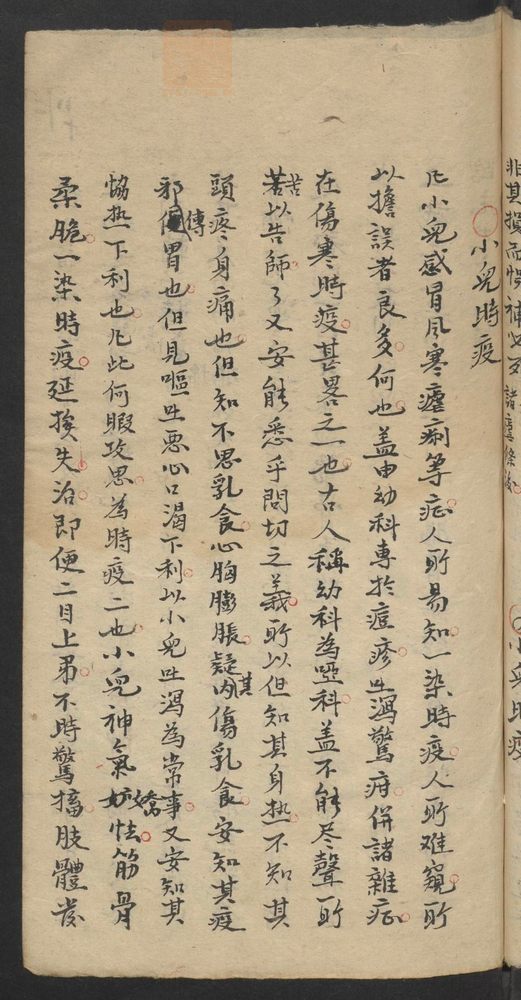 小兒時疫
凡小兒感冒風寒瘧痢等症人所易知一染時疫人所难窺所
以擔誤者良多何也盖由幼科專扵痘疹吐瀉驚疳併諸雜症
在傷寒時疫甚畧之一也古人稱幼科為啞科盖不能尽聲所
苦以告師了又安能悉乎問切之義所以但知其身热不知其
頭疼身痛也但知不思乳食心胸膨脹疑其内傷乳食安知其疫
邪傳胃也但見嘔吐惡心口渴下利以小兒吐瀉為常事又安知其
恊热下利也凡此何暇攻思為時疫二也小兒神氣嬌怯筋骨
柔脆一染時疫延挨失治即便二目上吊不時驚搐肢體發